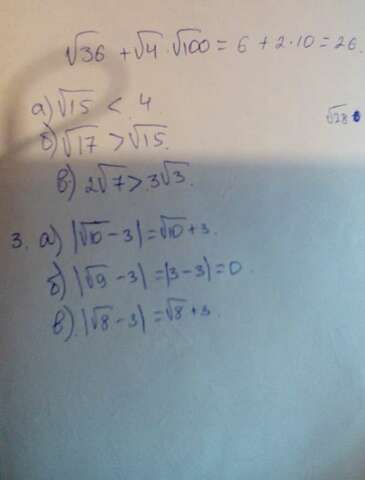 √36 + √4 · √100 = 6 + 2 · 10 = 26.
а) √15 < 4.
√28
б) √17 > √15.
в) 2√7 > 3√3.
3. а) |√10 - 3| = √10 + 3.
б) |√9 - 3| = |3 - 3| = 0.
в) |√8 - 3| = √8 + 3.